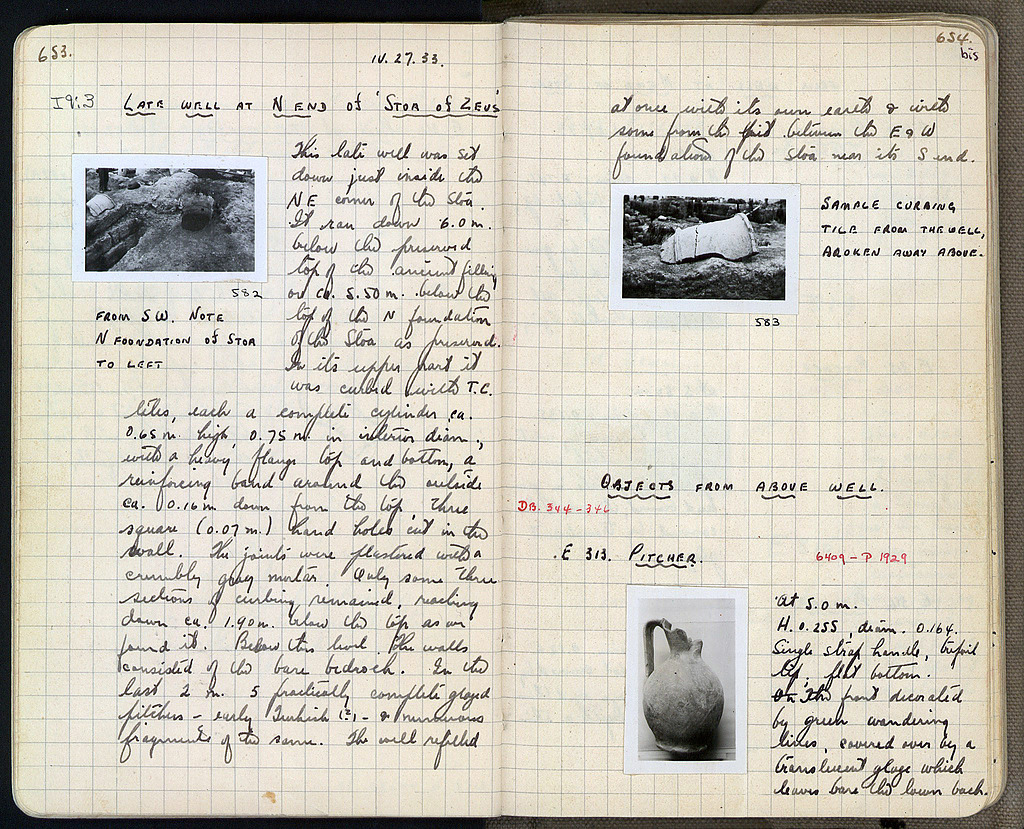 653.
IV. 27. 33.
LATE WELL AT N END OF 'STOA OF ZEUS'
This late well was set
down just inside the
NE corner of the Stoa.
It ran down 6.0 m.
below the preserved
top of the ancient filling
or ca. 5.50 m. below the
top of the N foundation
of the Stoa as preserved.
In its upper part it
was curbed with T.C.
582
FROM SW. NOTE
N FOUNDATION OF STOA
TO LEFT
tiles, each a complete cylinder ca.
0.65 m. high, 0.75 m. in interior diam.,
with a heavy flange top and bottom, a
reinforcing band around the outside
ca. 0.16 m down from the top, three
square (0.07 m.) hand holes cut in the
wall. The joints were plastered with a
crumbly gray mortar. Only some three
sections of curbing remained, reaching
down ca. 1.90 m. below the top as we
found it. Below this level the walls
consisted of the bare bedrock. In the
last 2 m. 5 practically complete glazed
pitchers – early Turkish (?) – & numerous
fragments of the same. The well refilled
654.
bis
at once with its own earth & with
some from the pit between the E & W
foundations of the Stoa near its S end.
SAMPLE CURBING
TILE FROM THE WELL,
BROKEN AWAY ABOVE.
583
OBJECTS FROM ABOVE WELL.
DB. 344 - 346
E 313. PITCHER.
6409 – P 1929
At 5.0 m.
H. 0.255, diam. 0.164.
Single strap handle, trefoil
lip, flat bottom.
On the front decorated
by green wandering
lines, covered over by a
translucent glaze which
leaves bare the lower back.